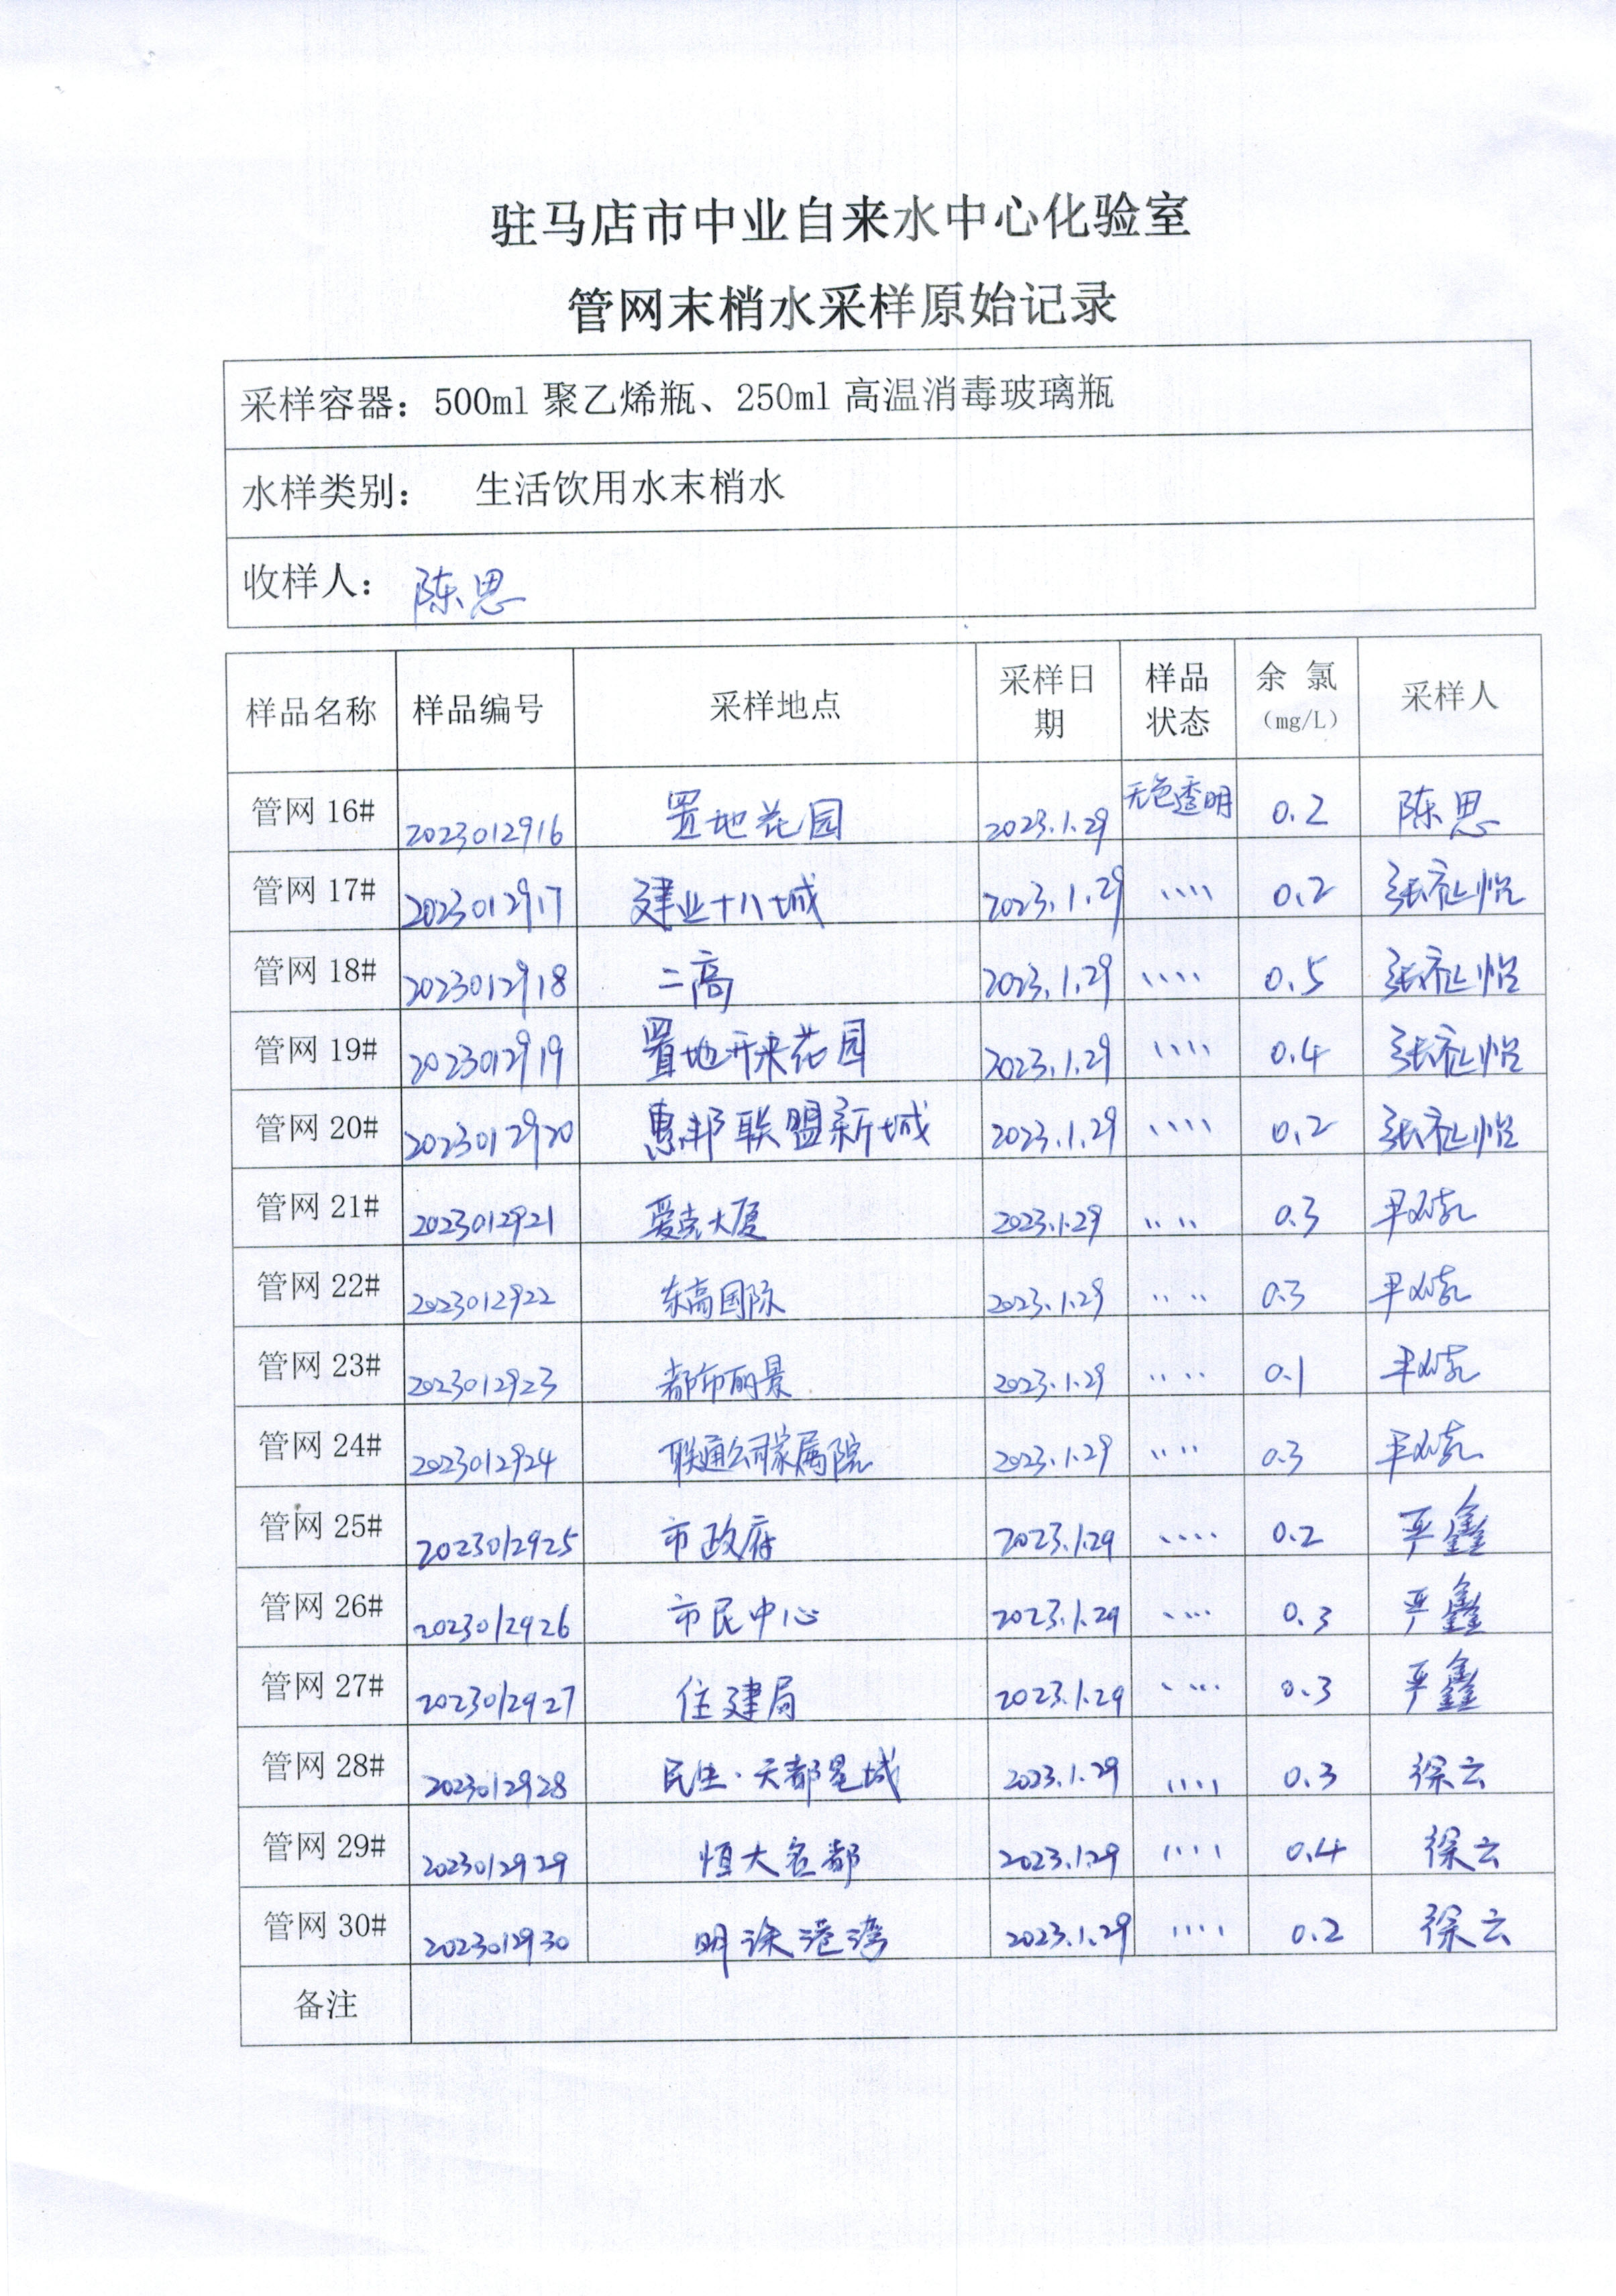 驻马店市中业自来水中心化验室
管网末梢水采样原始记录
采样容器：500ml 聚乙烯瓶、250ml 高温消毒玻璃瓶
水样类别： 生活饮用水末梢水
收样人： 陈思
样品名称 样品编号 采样地点 采样日期 样品状态 余氯（mg/L） 采样人
管网 16# 2023012916 置地花园 2023.1.29 无色透明 0.2 陈思
管网 17# 2023012917 建业十八城 2023.1.29 〃〃 0.2 张怡
管网 18# 2023012918 二高 2023.1.29 〃〃 0.5 张怡
管网 19# 2023012919 置地开来花园 2023.1.29 〃〃 0.4 张怡
管网 20# 2023012920 惠邦联盟新城 2023.1.29 〃〃 0.2 张怡
管网 21# 2023012921 爱克大厦 2023.1.29 〃〃 0.3
管网 22# 2023012922 东高国际 2023.1.29 〃〃 0.3
管网 23# 2023012923 都市丽景 2023.1.29 〃〃 0.1
管网 24# 2023012924 联通公司家属院 2023.1.29 〃〃 0.3
管网 25# 2023012925 市政府 2023.1.29 〃〃 0.2 严鑫
管网 26# 2023012926 市民中心 2023.1.29 〃〃 0.3 严鑫
管网 27# 2023012927 住建局 2023.1.29 〃〃 0.3 严鑫
管网 28# 2023012928 民生·天都星城 2023.1.29 〃〃 0.3 徐云
管网 29# 2023012929 恒大名都 2023.1.29 〃〃 0.4 徐云
管网 30# 2023012930 明港湾 2023.1.29 〃〃 0.2 徐云
备注